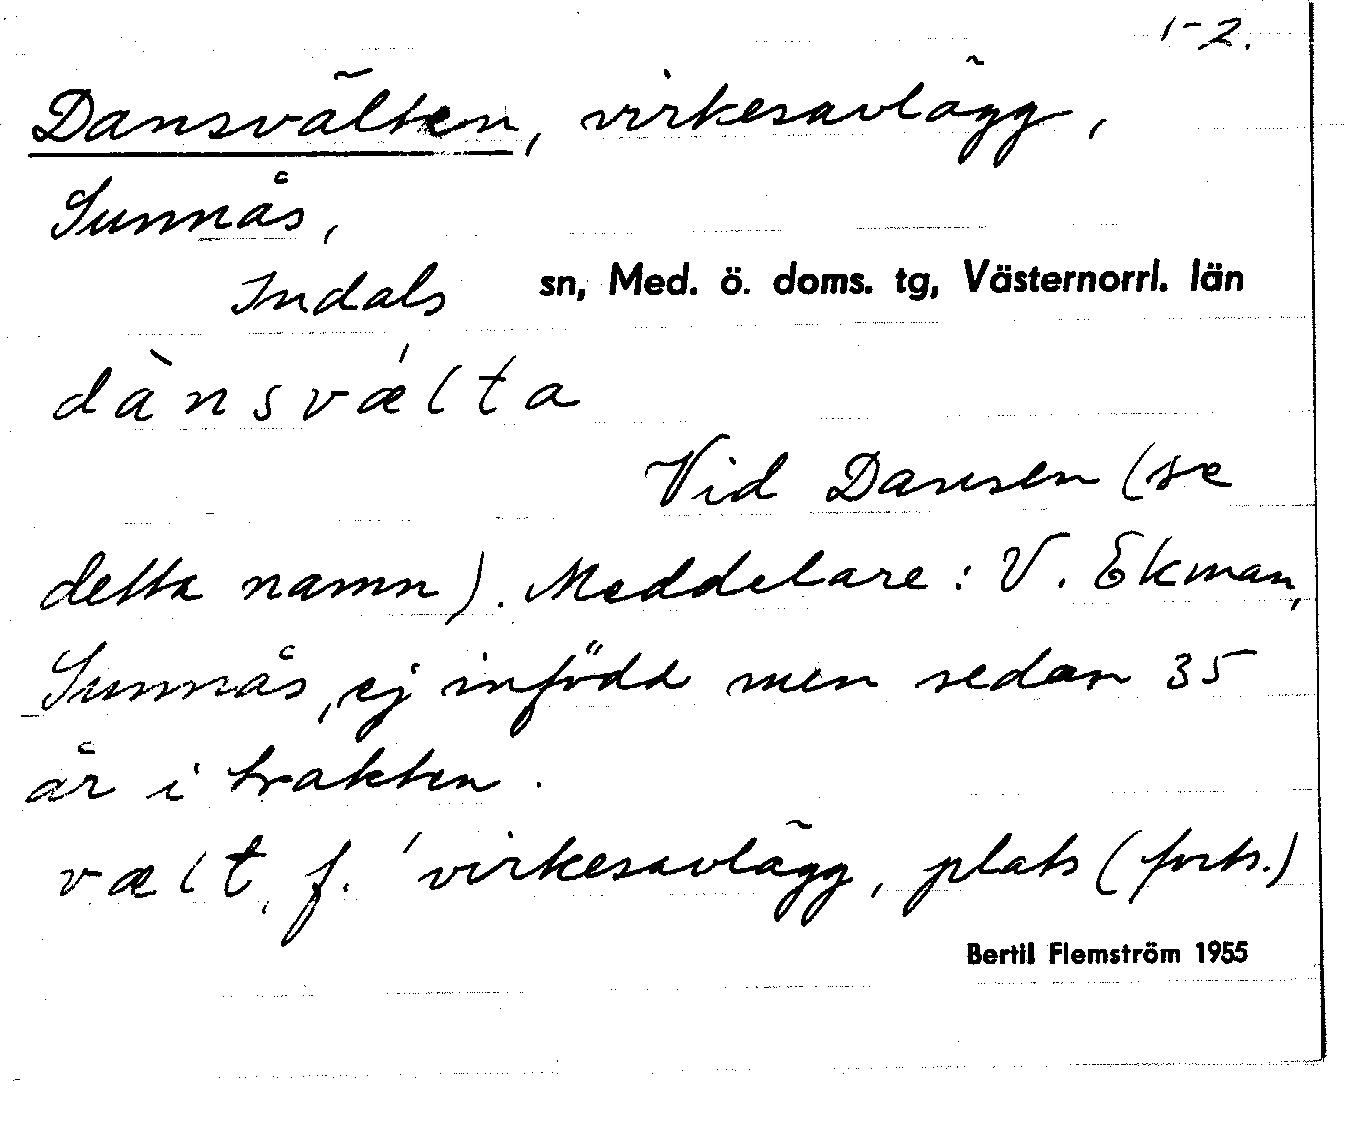 1-2.
Dansvälten, virkesavlägg,
Sunnås,
Indals sn, Med. ö. doms. tg, Västernorrl. län
dànsvǽlta
Vid Dansen (se
detta namn). Meddelare: V. Ekman,
Sunnås, ej infödd men sedan 35
år i trakten.
vælt, f. 'virkesavlägg, plats (forts.)
Bertil Flemström 1955